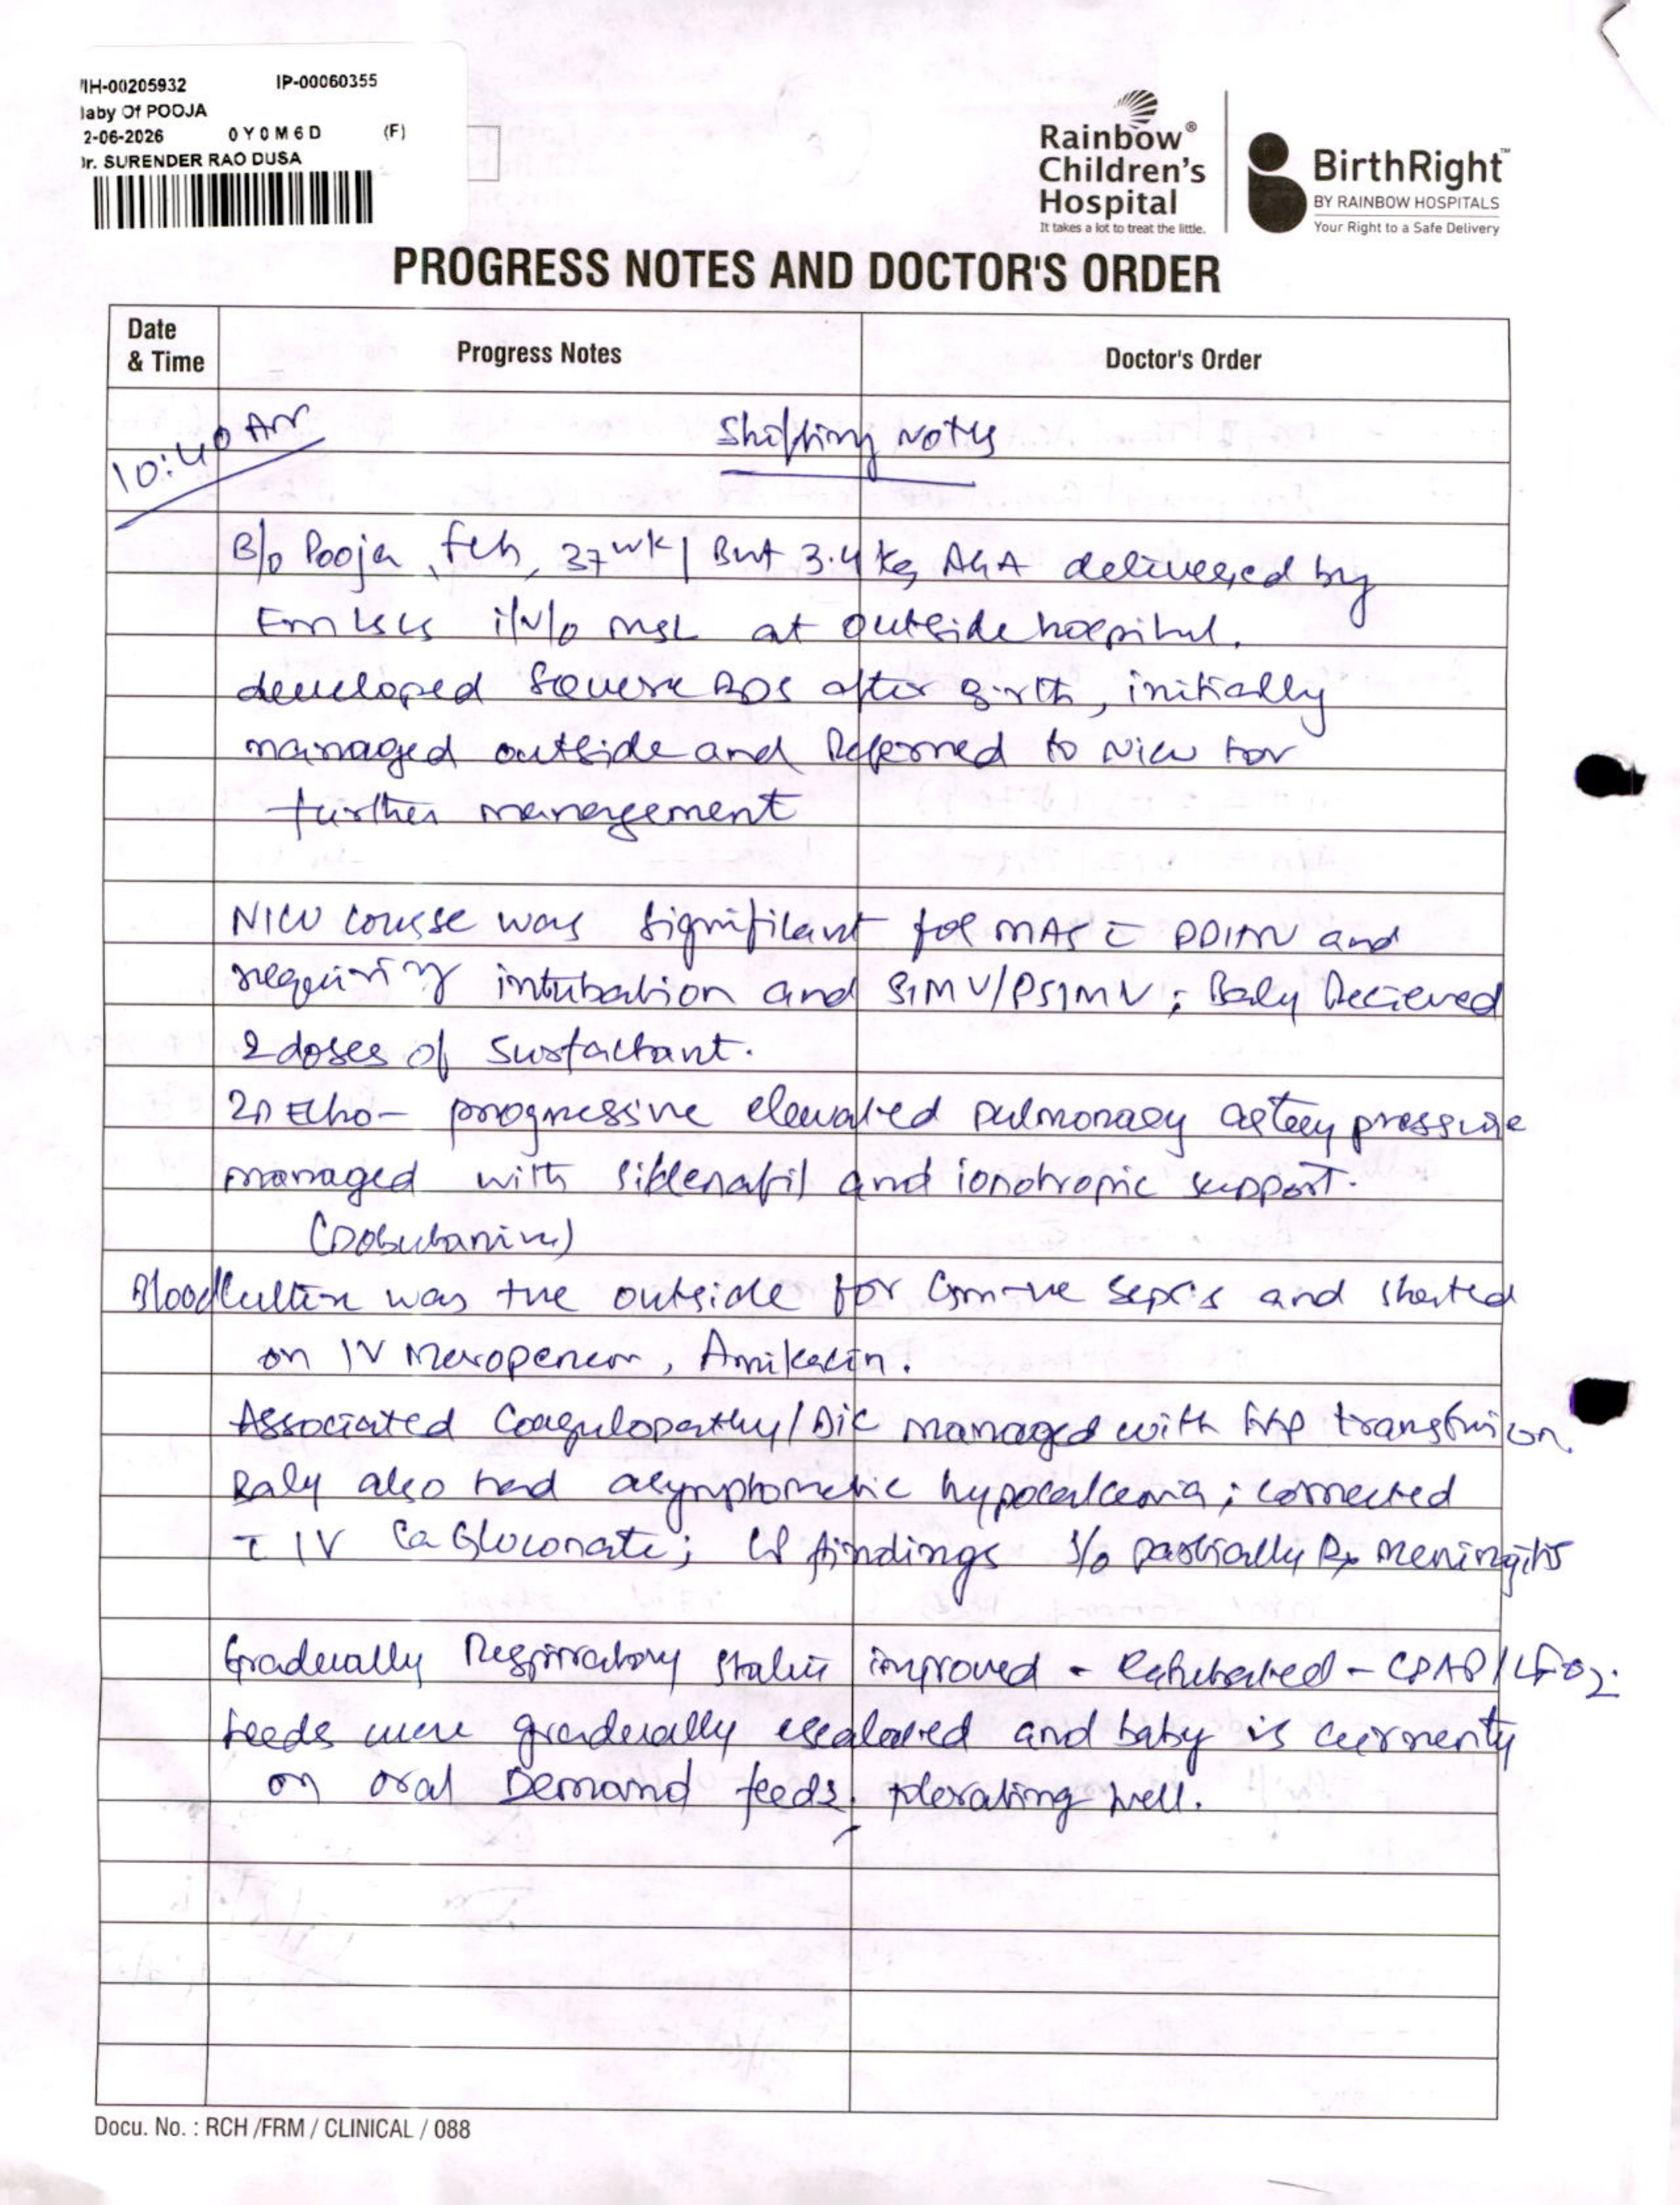 IH-00205932 IP-00060355
aby Of POOJA
2-06-2026 0Y0M6D (F)
Dr. SURENDER RAO DUSA
Rainbow®
Children's
Hospital
It takes a lot to treat the little.
BirthRight™
BY RAINBOW HOSPITALS
Your Right to a Safe Delivery
PROGRESS NOTES AND DOCTOR'S ORDER
Date & Time Progress Notes Doctor's Order
10:40 Am
Shifting Notes
B/o Pooja, fch, 37wk | Bwt 3.4 kg AGA delivered by
Em LSCS i/v/o MSL at outside hospital.
developed severe RDS after Birth, initially
managed outside and Referred to NICU for
further management
NICU course was significant for MAS c̄ PPHN and
requiring intubation and SIMV/PSIMV; Baby Recieved
2 doses of surfactant.
2D Echo - progressive elevated pulmonary artery pressure
managed with sildenafil and ionotropic support.
(Dobutamine)
Blood Culture was +ve outside for Gm -ve sepsis and started
on IV Meropenem, Amikacin.
Associated Coagulopathy/DIC managed with FFP transfusion.
Baby also had asymptomatic hypocalcemia; corrected
c̄ IV Ca Gluconate; findings s/o partially Rx meningitis
Gradually Respiratory status improved - Extubated - CPAP/LFO2.
Feeds were gradually escalated and baby is currently
on oral Demand feeds, tolerating well.
Docu. No. : RCH /FRM / CLINICAL / 088